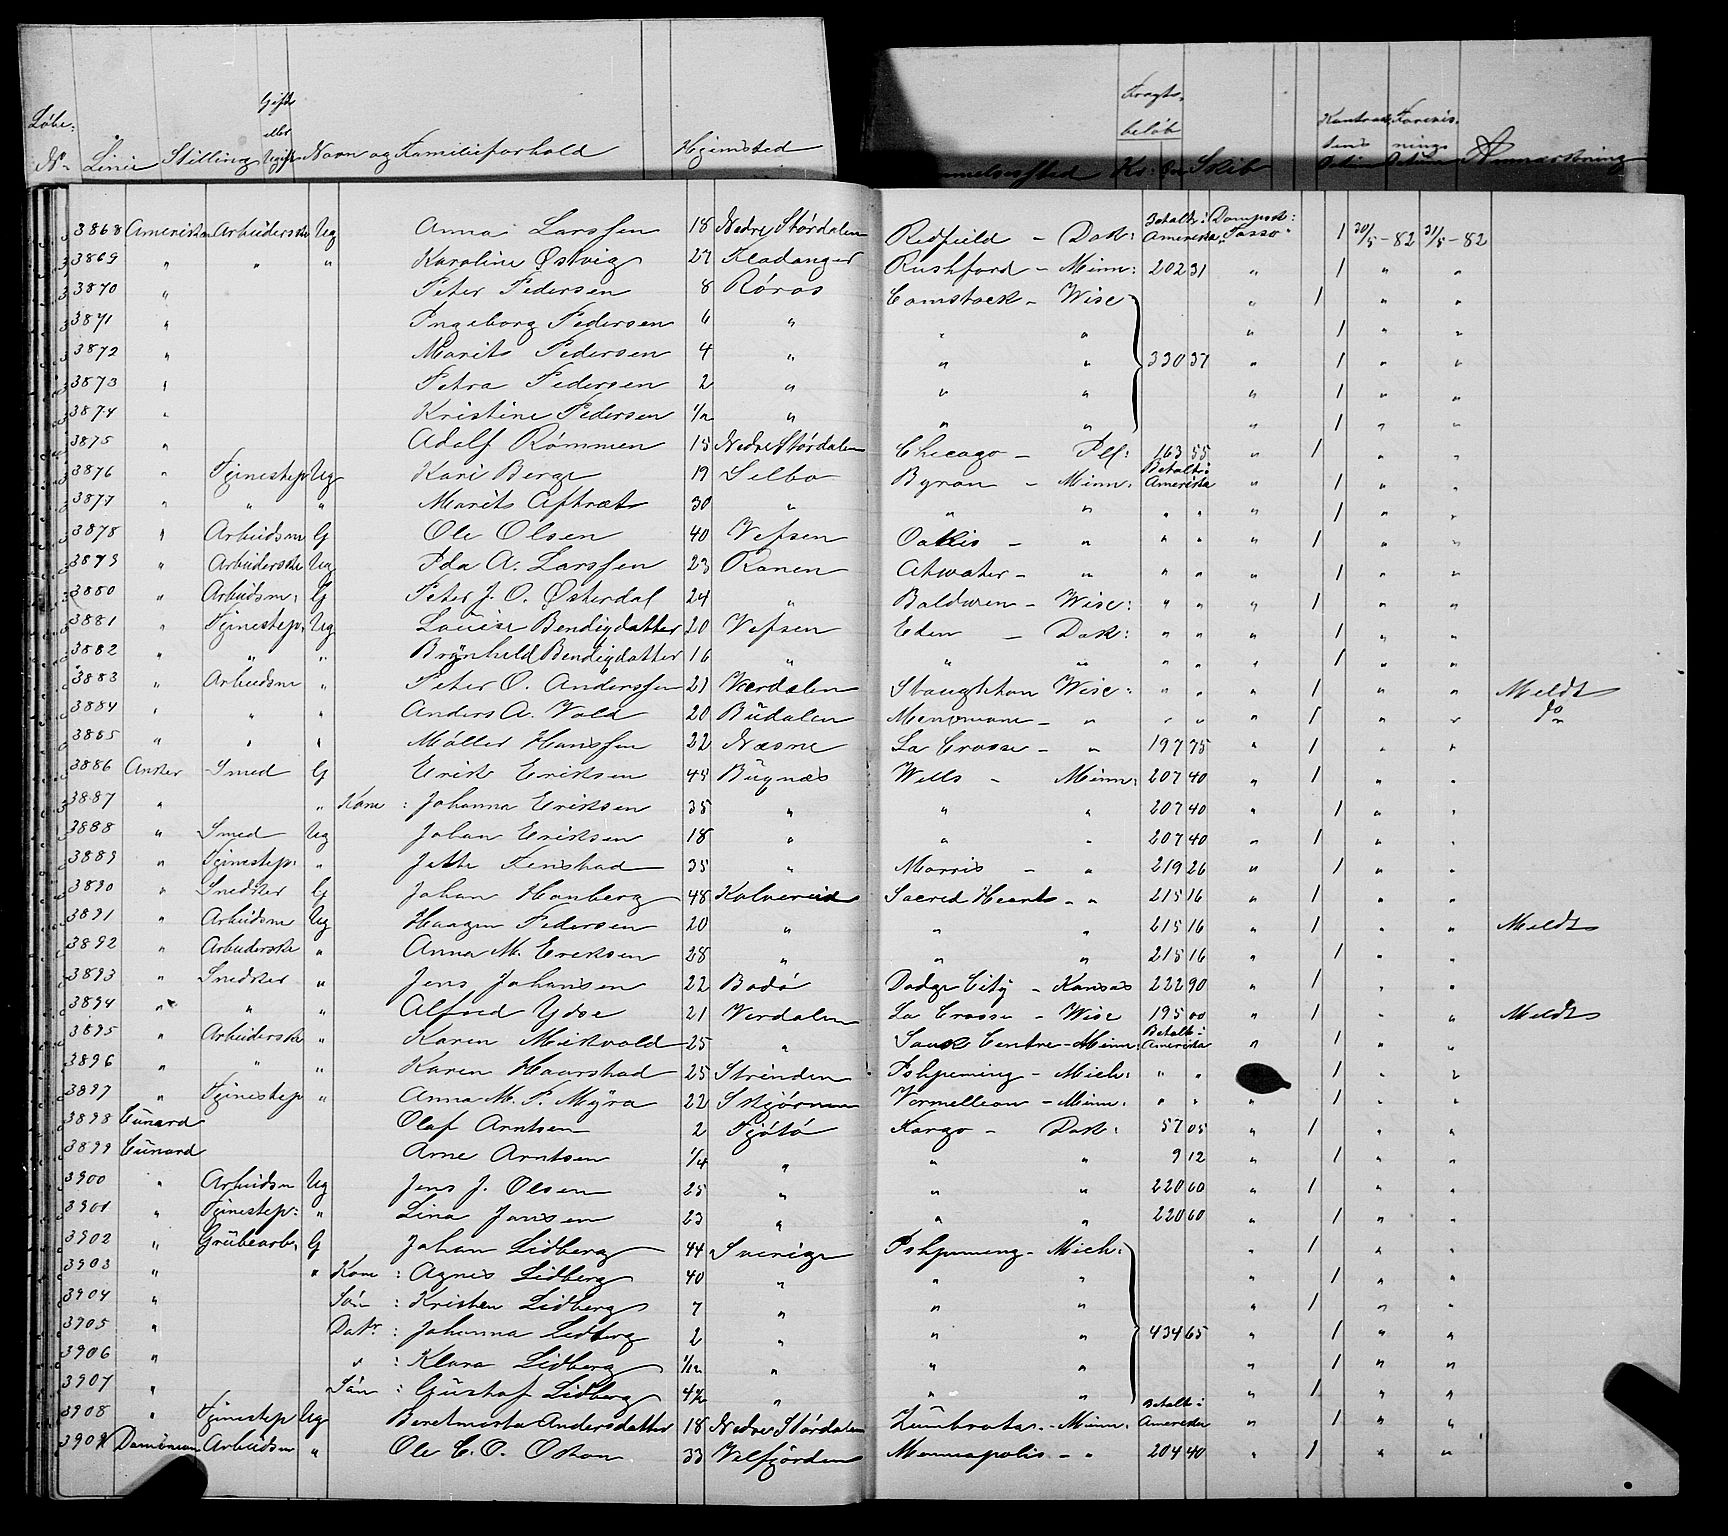 Løbe- N- Linie Stilling Gift eller Ugift Navn og Familieforhold Hjemsted Fragtbeløb Kr: Skib Anmærkning
3868 Amerikan Arbeiderske Ug Anna Larssen 18 Nedre Stördalen Redfield - Dak: Betalt i Amerika Dampsk: Tasso 1 30/5-82 31/5-82
3869 " " " Karoline Østvig 27 Kladanger Rushford - Minn: 202 31 " 1 " "
3870 " Peter Pedersen 8 Røros Comstock - Wisc " 1 " "
3871 " Ingeborg Pedersen 6 " " " " 1 " "
3872 " Marit Pedersen 4 " " " 330 37 " 1 " "
3873 " Petra Pedersen 2 " " " " 1 " "
3874 " Kristine Pedersen " " " " 1 " "
3875 " Adolf Rømmen 15 Nedre Stördalen Chicago - Ill: 163 55 " 1 " "
3876 " Tjenestep Ug Kari Berge 19 Selbo Byron - Minn: Betalt i Amerika " 1 " "
3877 " " " Marit Aftræt 30 " " " " " " 1 " "
3878 " Arbeidsm G Ole Olsen 40 Vefsen Oakis - " " " " 1 " "
3879 " Arbeiderske Ug Ida A. Larssen 23 Ranen Atwater - " " " " 1 " "
3880 " Arbeidsm: G Peter J. O. Østerdal 24 " Balduren - Wisc: " " " 1 " "
3881 " Tjenestep. Ug Louise Bendigdatter 20 Vefsen Eden - Dak: " " " 1 " "
3882 " " " Brynhild Bendigdatter 16 " " " " " " 1 " "
3883 " Arbeidsm " Peter O. Anderssen 21 Værdalen Stoughton Wisc: " " " 1 " " Meldt
3884 " " " Anders A. Vold 20 Büdalen Menomone - " " " " 1 " " do
3885 " " " Møller Hanssen 22 Næsne La Crosse - " 197 75 " 1 " "
3886 Anker Smed G Erik Eriksen 45 Bügnæs Wells - Minn: 207 40 " 1 " "
3887 " " Kone: Johanna Eriksen 35 " " " 207 40 " 1 " "
3888 " Smed Ug Johan Eriksen 18 " " " 207 40 " 1 " "
3889 " Tjenestep: " Jette Fenstad 35 " Morris - " 219 26 " 1 " "
3890 " Snedker G Johan Hanberg 48 Kolvereid Sacred Heart - " 215 16 " 1 " "
3891 " Arbeidsm Ug Haagen Pedersen 20 " " " 215 16 " 1 " " Meldt
3892 " Arbeiderske " Anna M. Eriksen 28 " " " 215 16 " 1 " "
3893 " Snedker " Jens Johansen 22 Bodø Dodge City - Kansas 222 90 " 1 " "
3894 " " " Alfred Ydse 21 Verdalen La Crosse - Wisc 195 00 " 1 " " Meldt
3895 " Arbeiderske " Karen Meikvold 25 " Sauk Centre - Minn: Betalt i Amerika " 1 " "
3896 " " " Karen Haarstad 25 Strinden Ishpeming - Mich: " " 1 " "
3897 " Tjenestep " Anna M. P. Myra 22 Skjørnen Vermellion - Minn: " " " 1 " "
3898 Cunard Olaf Arntsen 2 Tjøtø Fargo - Dak: 57 05 " 1 " "
3899 Cunard Arne Arntsen 1/4 " " " 9 12 " 1 " "
3900 " Arbeidsm Ug Jens J. Olsen 25 " " " 220 60 " 1 " "
3901 " Tjenestep: " Lina Jansen 23 " " " 220 60 " 1 " "
3902 " Grübearb. G Johan Lidberg 44 Sverige Ishpeming - Mich: " 1 " "
3903 " " Kone: Agnes Lidberg 40 " " " " 1 " "
3904 " Søn: Kristen Lidberg 7 " " " " 1 " "
3905 " Datr: Johanna Lidberg 2 " " " 434 65 " 1 " "
3906 " ": Klara Lidberg " " " " 1 " "
3907 " Søn: Gustaf Lidberg 4½ " " " " 1 " "
3908 " Tjenestep Ug Beretmarta Andersdatter 18 Nedre Stördalen Zumbrota - Minn: Betalt i Amerika " 1 " "
3909 Dominion Arbeidsm " Ole C. O. Oskan 33 Velfjorden Menneapolis - " 204 40 " 1 " "